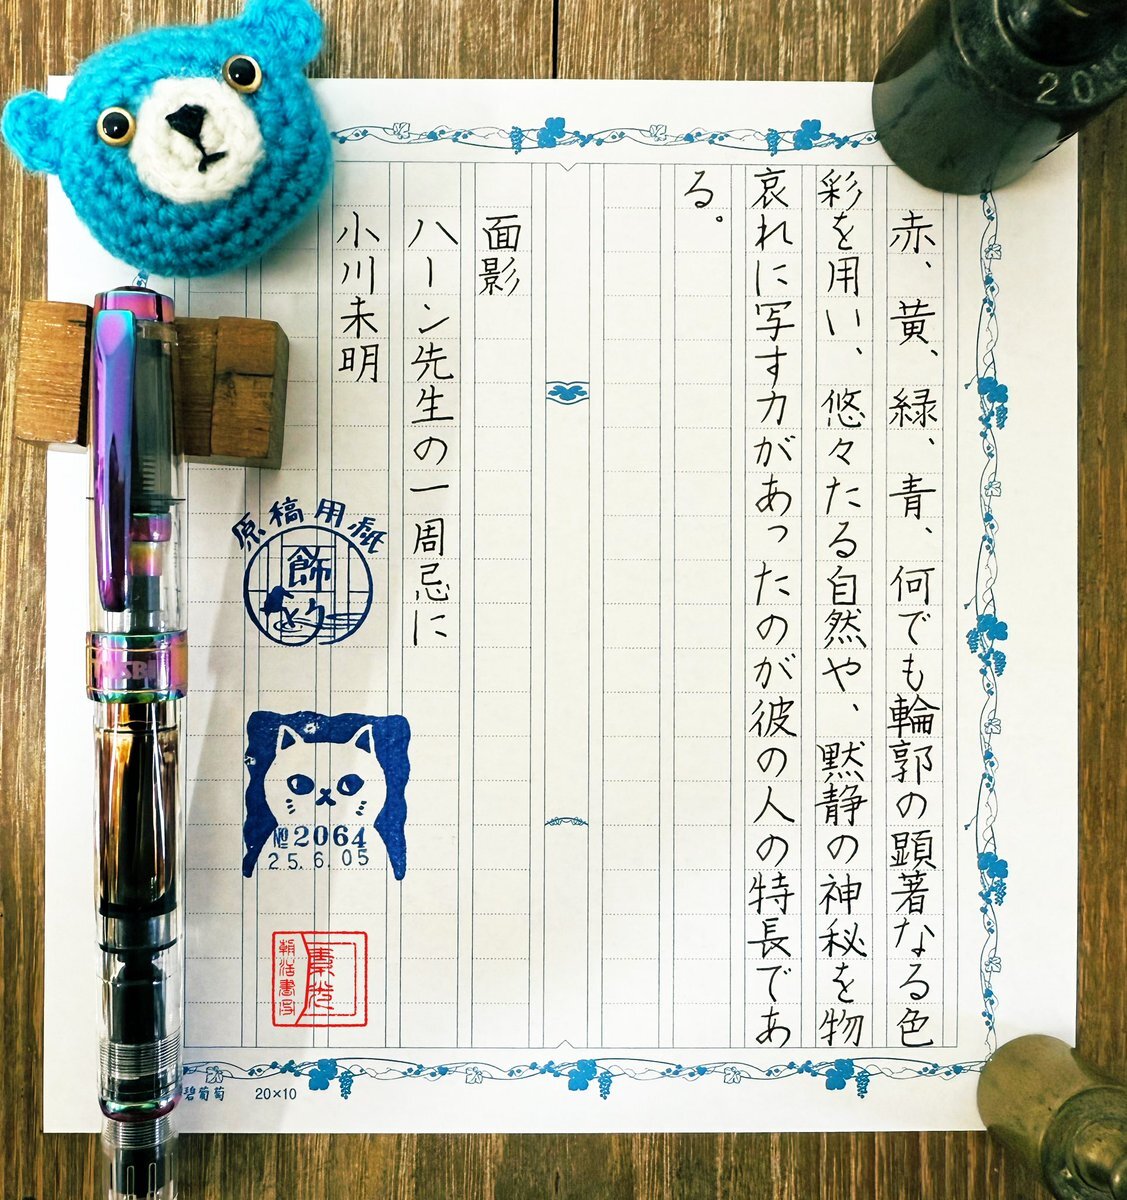 赤、黄、緑、青、何でも輪郭の顕著なる色
彩を用い、悠々たる自然や、黙静の神秘を物
哀れに写す力があったのが彼の人の特長であ
る。
面影
ハーン先生の一周忌に
小川未明
原稿用紙
飾
№2064
25.6.05
碧葡萄
20×10